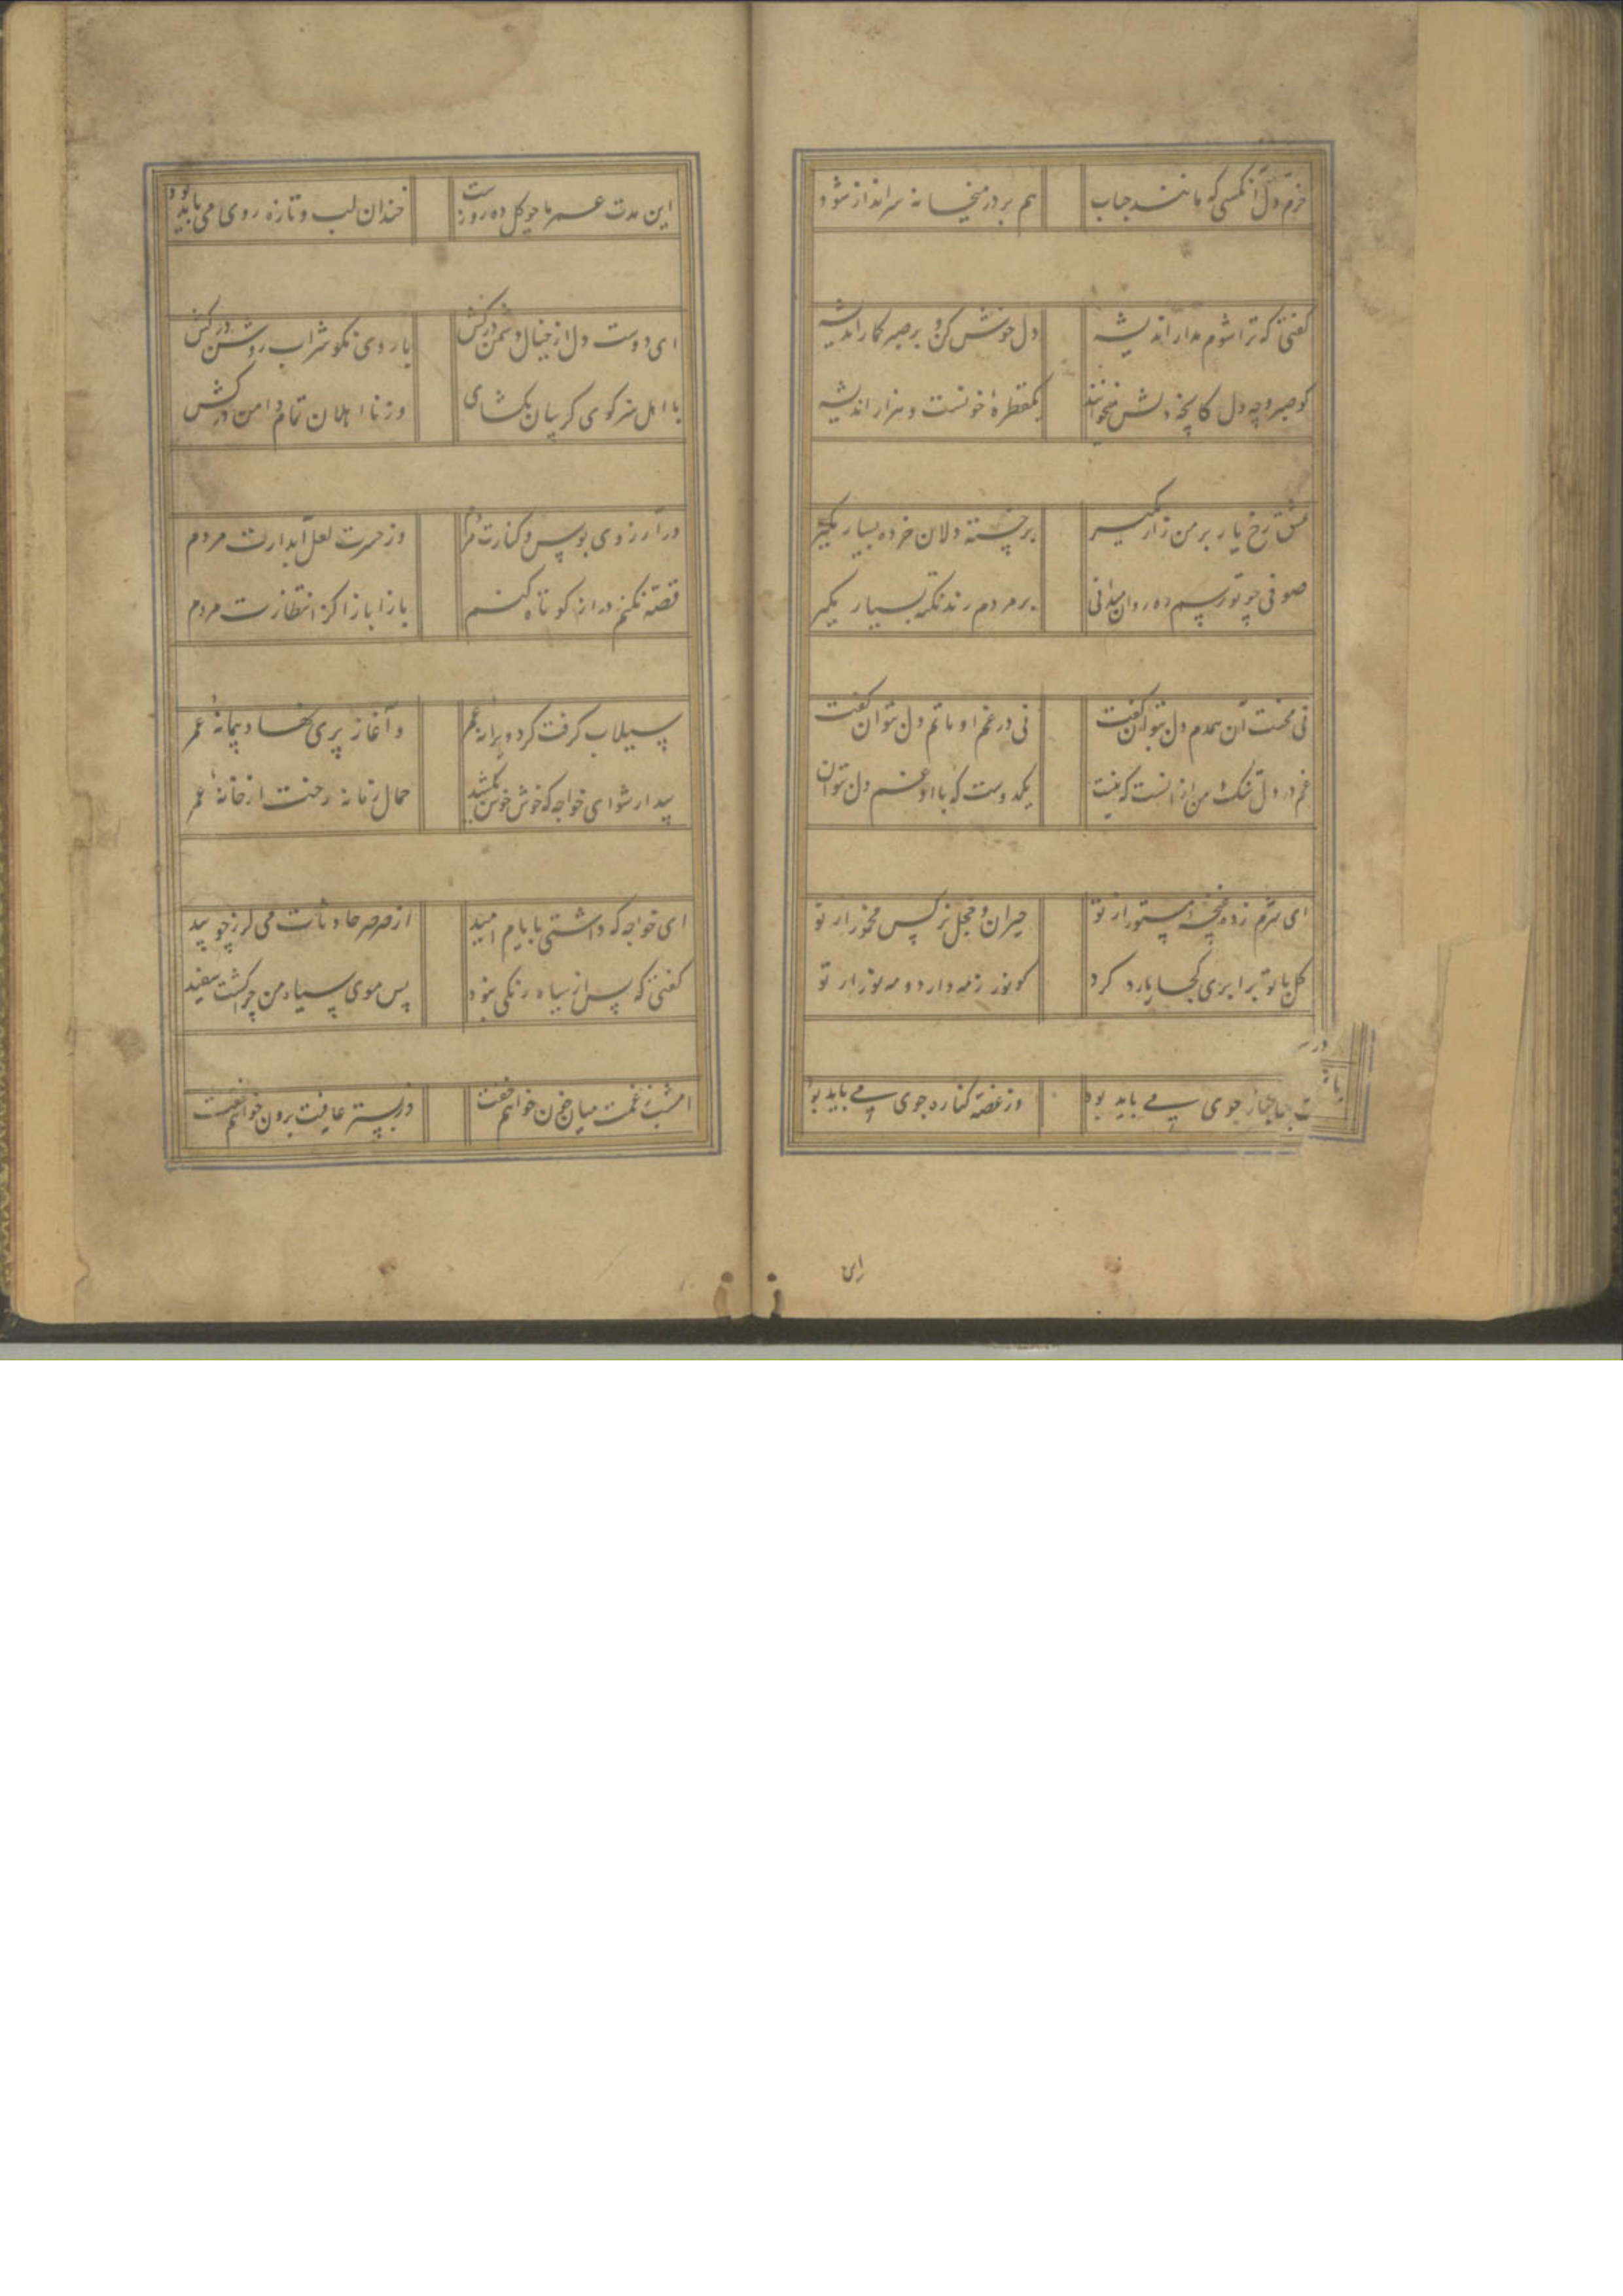 خرم دل آنکسی که مانند حباب هم بر در میخانه سرانداز شود
گفتی که ترا شوم مدار اندیشه دل خوش کن و بر صبر گمار اندیشه
کو صبر و چه دل کانچه دلش میخوانند یکقطرهٔ خونست و هزار اندیشه
عشق رخ یار بر من زار مگیر بر خسته دلان خرده بسیار مگیر
صوفی چو تو رسم ره روان میدانی بر مردم رند نکته بسیار مگیر
نی محنت آن همدم دل بتوان گفت نی در غم او ماتم دل بتوان گفت
غم در دل تنک من از آنست که نیست یکدوست که با او غم دل بتوان
ای شرم زده غنچه مستور از تو حیران و خجل نرکس مخمور از تو
کل با تو برابری کجا یارد کرد کو نور ز مه دارد و مه نور از تو
جوی می باید بود وز غصه کناره جوی می باید بود
این مدت عمر ما چو کل ده روزست خندان لب و تازه روی می باید بود
ای دوست دل از خیال دشمن درکش با روی نکو شراب روشن درکش
با اهل هنر کوی کریبان بکشای وز نا اهلان تمام دامن درکش
در آرزوی بوس و کنارت مردم وز حسرت لعل آبدارت مردم
قصه نکنم دراز کوتاه کنم بازا بازا کز انتظارت مردم
سیلاب کرفت کرد ویرانه عمر و آغاز پری نهاد پیمانهٔ عمر
بیدار شو ای خواجه که خوش خوش بکشد حمال زمانه رخت از خانهٔ عمر
ای خواجه که داشتی بایام امید از صرصر حادثات می لرز چو بید
کفتی که پس از سیاه رنکی نبود پس موی سیاه من چرا کشت سفید
امشب ز غمت میان خون خواهم خفت وز بستر عافیت برون خواهم خفت